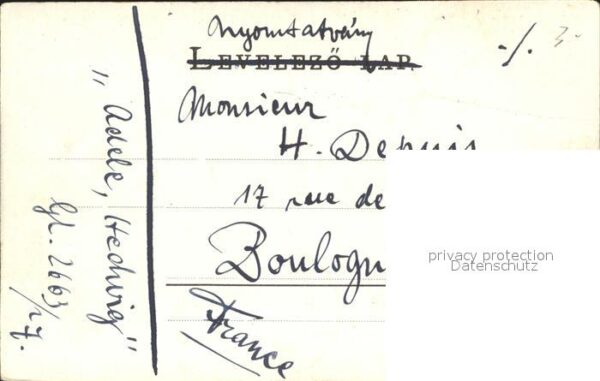 Nyomtatvány
LEVELEZŐ LAP.
Monsieur
H. Depuis
17 rue de
Boulogn
France
"Adele, Hedwig"
Gl. 2663/27.
privacy protection
Datenschutz